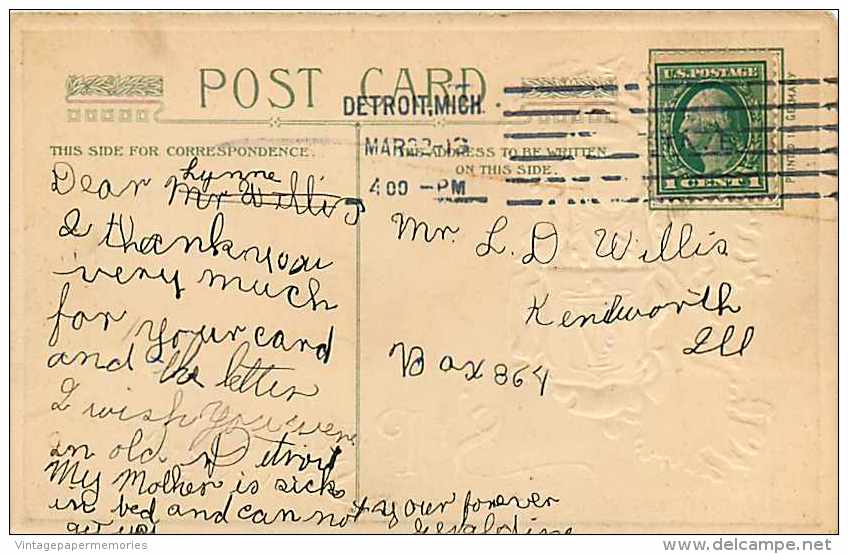 POST CARD.
DETROIT, MICH
MAR
4 00 - PM
U.S. POSTAGE
1 CENT
PRINTED IN GERMANY
THIS SIDE FOR CORRESPONDENCE.
THE ADDRESS TO BE WRITTEN
ON THIS SIDE.
Dear Mr Willis Lynne
I thank you
very much
for your card
and the letter
I wish you were
in old Detroit
My Mother is sick
in bed and can not
get up
your forever
Geraldine
Mr. L. D Willis
Kenilworth
Ill
Box 864
VintagePaperMemories
delcampe.net